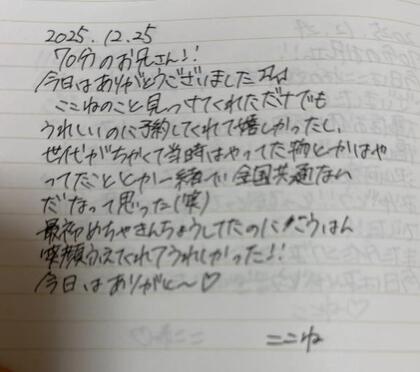 2025.12.25
70分のお兄さん!!
今日はありがとうございました
ここねのこと見つけてくれただけでも
うれしいのに予約してくれて嬉しかったし、
世代がちかくて当時はやってた物とかはや
ってたこととか一緒で全国共通ない
だなって思った(笑)
最初めちゃきんちょうしてたのにこうはん
笑顔ふえてくれてうれしかった!!
今日はありがと〜♡
ここね